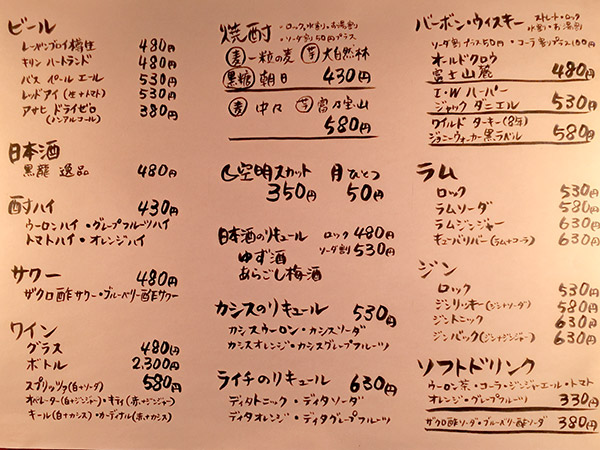 ビール
レーベンブロイ樽生 480円
キリン ハートランド 480円
バス ペール エール 530円
レッドアイ(生+トマト) 530円
アサヒ ドライゼロ 380円
(ノンアルコール)
日本酒
黒龍 逸品 480円
酎ハイ 430円
ウーロンハイ・グレープフルーツハイ
トマトハイ・オレンジハイ
サワー 480円
ザクロ酢サワー・ブルーベリー酢サワー
ワイン
グラス 480円
ボトル 2,300円
スプリッツァ(白+ソーダ) 580円
オペレーター(白+ジンジャー)・キティ(赤+ジンジャー)
キール(白+カシス)・カーディナル(赤+カシス)
焼酎
・ロック・水割・お湯割
・ソーダ割 50円プラス
麦 一粒の麦 芋 大自然林
黒糖 朝日 430円
麦 中々 芋 富乃宝山
580円
空明スカット 月ひとつ
350円 50円
日本酒のリキュール ロック 480円
ソーダ割 530円
ゆず酒
あらごし梅酒
カシスのリキュール 530円
カシスウーロン・カシスソーダ
カシスオレンジ・カシスグレープフルーツ
ライチのリキュール 630円
ディタトニック・ディタソーダ
ディタオレンジ・ディタグレープフルーツ
バーボン・ウィスキー
ストレート・ロック
水割・お湯割
ソーダ割プラス50円・コーラ割プラス100円
オールドクロウ
富士山麓 480円
I・W ハーパー
ジャック ダニエル 530円
ワイルド ターキー(8年)
ジョニーウォーカー黒ラベル 580円
ラム
ロック 530円
ラムソーダ 580円
ラムジンジャー 630円
キューバリバー(ラム+コーラ) 630円
ジン
ロック 530円
ジンリッキー(ジン+ソーダ) 580円
ジントニック 630円
ジンバック(ジン+ジンジャー) 630円
ソフトドリンク
ウーロン茶・コーラ・ジンジャエール・トマト
オレンジ・グレープフルーツ 330円
ザクロ酢ソーダ・ブルーベリー酢ソーダ 380円